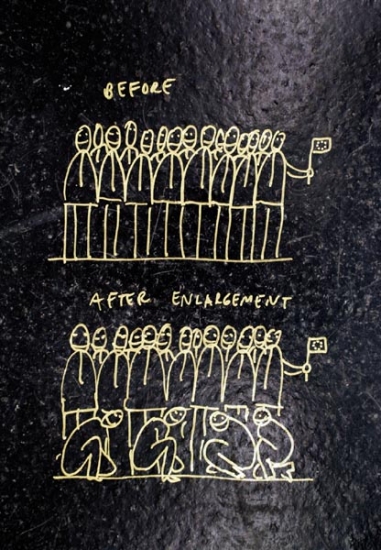 BEFORE
AFTER ENLARGEMENT